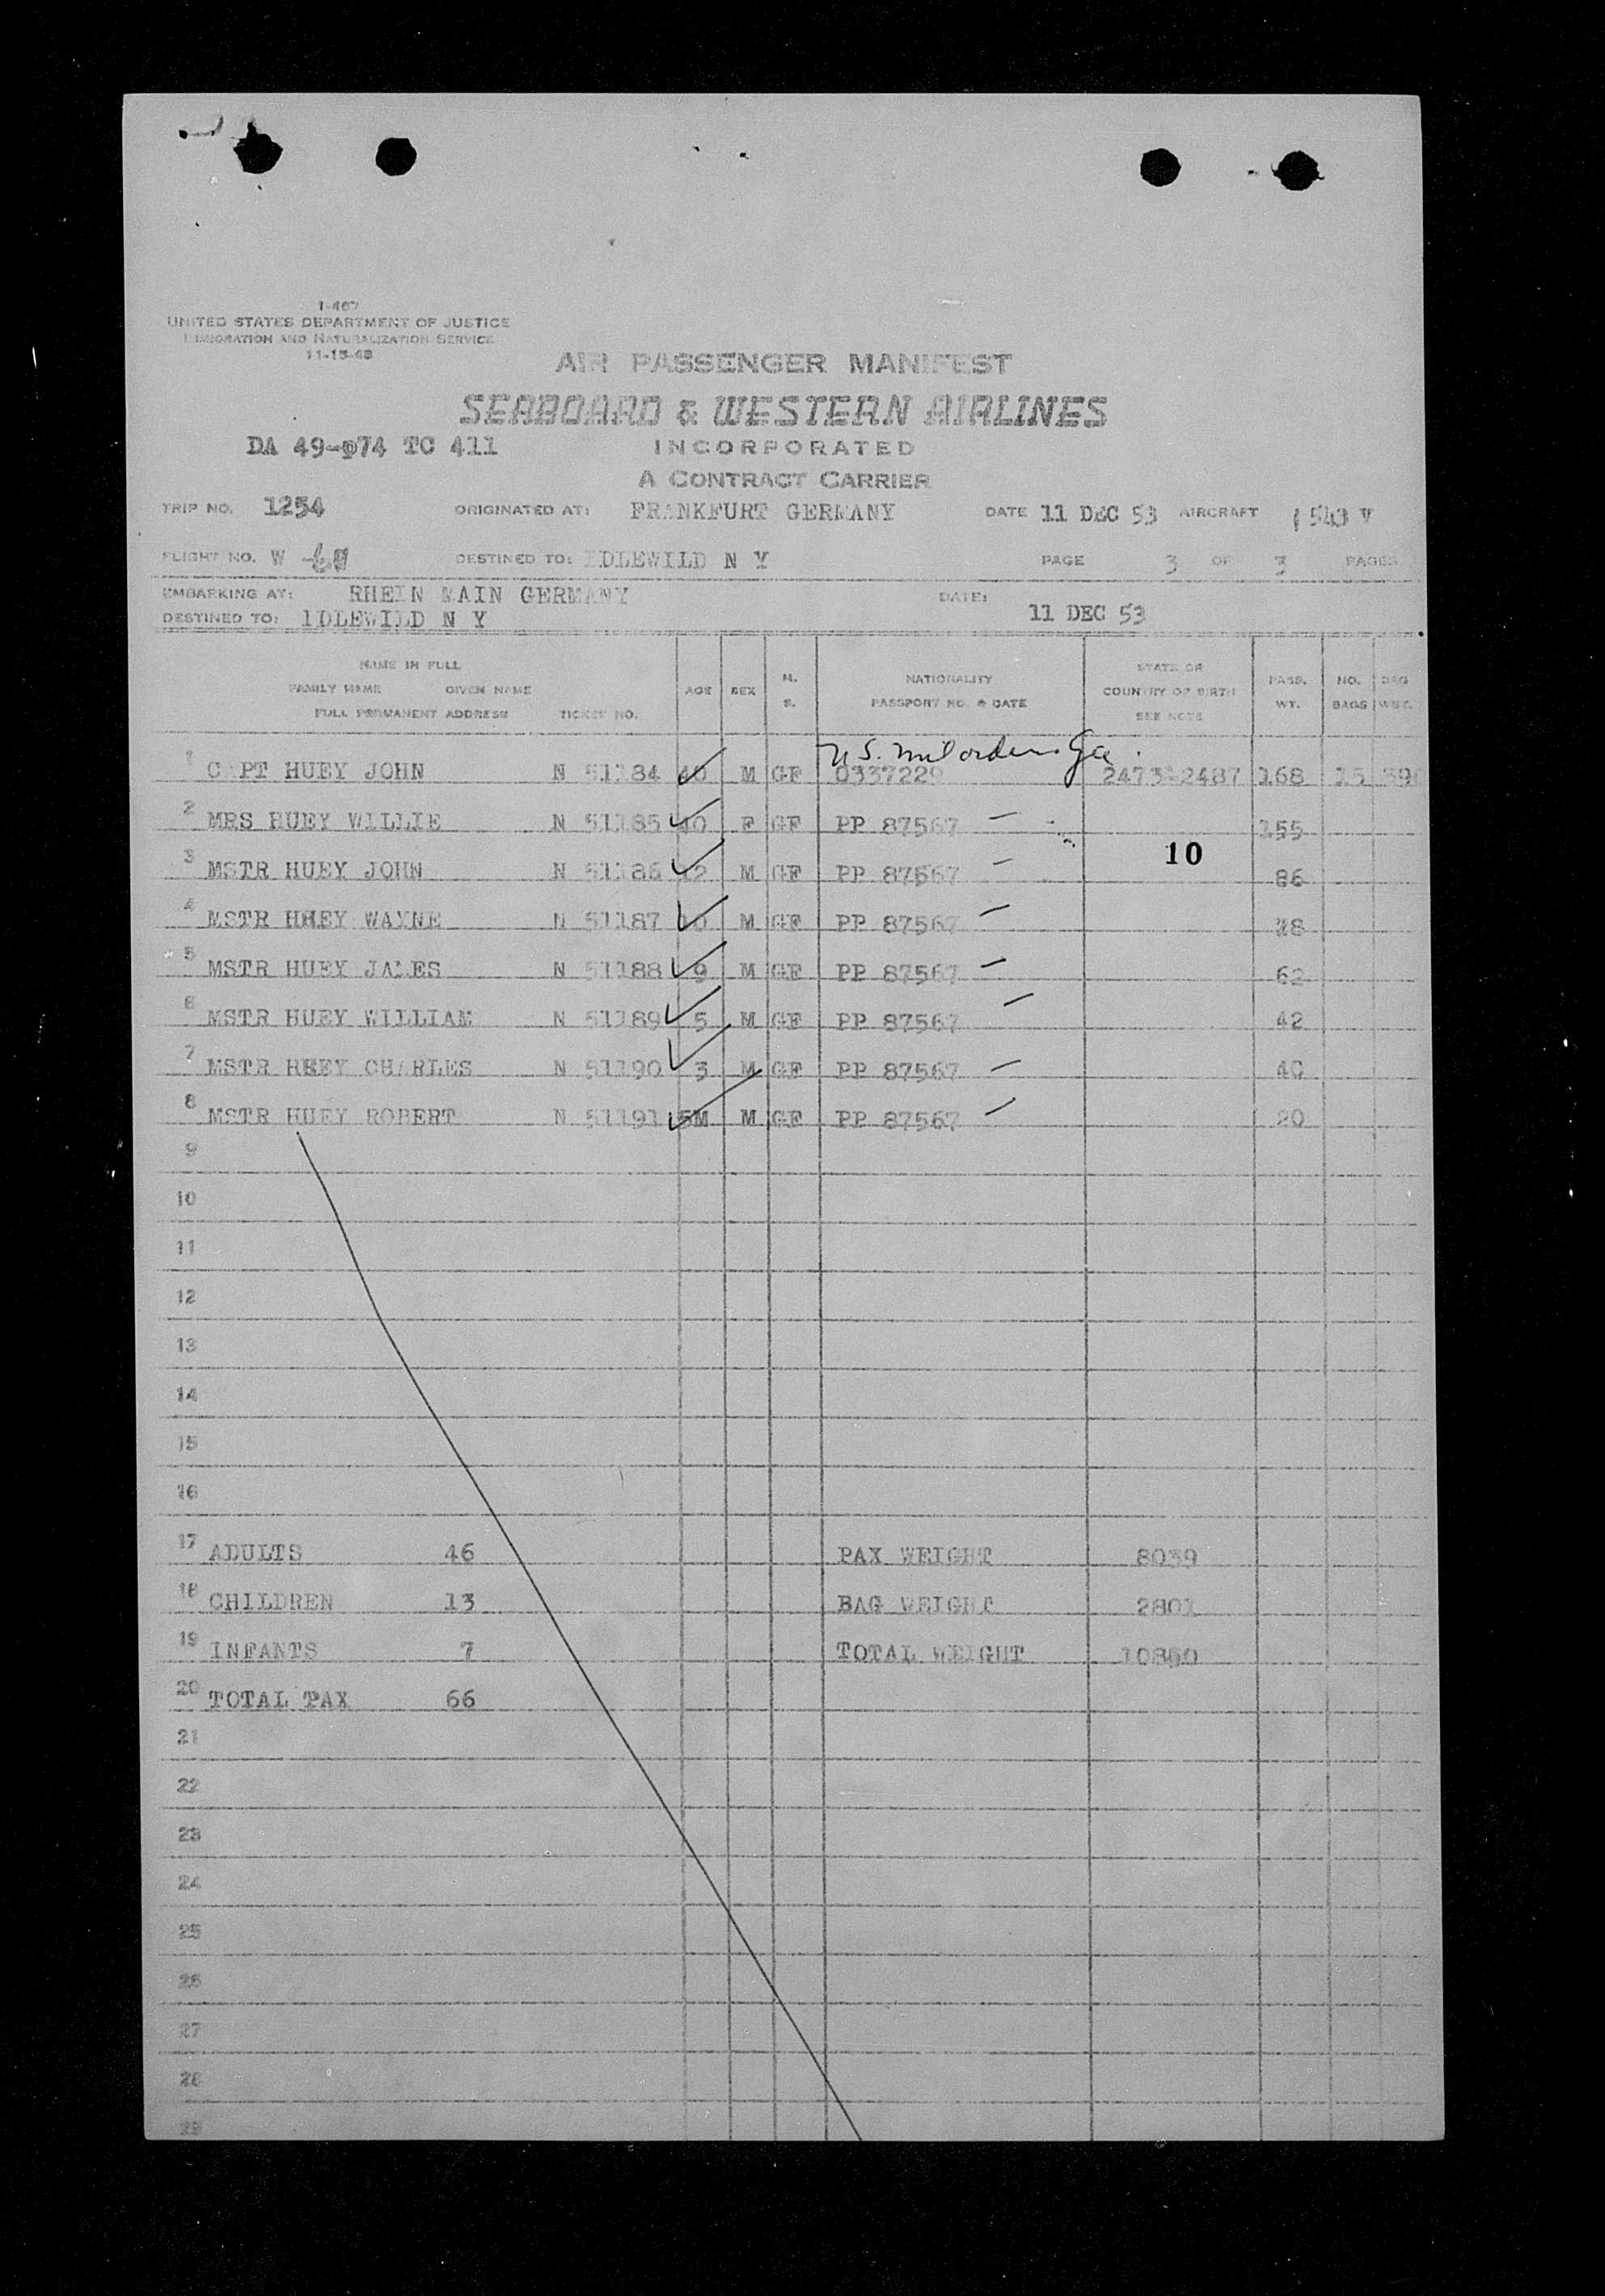 I-467
UNITED STATES DEPARTMENT OF JUSTICE
IMMIGRATION AND NATURALIZATION SERVICE
11-15-48
AIR PASSENGER MANIFEST
SEABOARD & WESTERN AIRLINES
DA 49-074 TC 411 INCORPORATED
A CONTRACT CARRIER
TRIP NO. 1254 ORIGINATED AT: FRANKFURT GERMANY DATE 11 DEC 53 AIRCRAFT 1543 V
FLIGHT NO. W DESTINED TO: IDLEWILD N Y PAGE 3 OF 3 PAGES
EMBARKING AT: RHEIN MAIN GERMANY DATE:
DESTINED TO: IDLEWILD N Y 11 DEC 53
NAME IN FULL
FAMILY NAME GIVEN NAME
FULL PERMANENT ADDRESS TICKET NO.
AGE SEX M. S.
NATIONALITY
PASSPORT NO. & DATE
STATE OR
COUNTRY OF BIRTH
SEE NOTE
PASS. WT. NO. BAGS BAG WGT.
US. mil orders
1 C PT HUEY JOHN N 51184 40 M GF 0337229 2473-2487 168 15 390
2 MRS HUEY WILLIE N 51185 40 F GF PP 87567 155
10
3 MSTR HUEY JOHN N 51186 12 M GF PP 87567 86
4 MSTR HHEY WAYNE N 51187 10 M GF PP 87567
5 MSTR HUEY JAMES N 51188 9 M GF PP 87567 62
6 MSTR HUEY WILLIAM N 51189 5 M GF PP 87567 42
7 MSTR HHEY CHARLES N 51190 3 M GF PP 87567 40
8 MSTR HUEY ROBERT N 51191 5M M GF PP 87567 20
9
10
11
12
13
14
15
16
17 ADULTS 46 PAX WEIGHT 8039
18 CHILDREN 13 BAG WEIGHT 2801
19 INFANTS 7 TOTAL WEIGHT 10850
20 TOTAL PAX 66
21
22
23
24
25
26
27
28
29